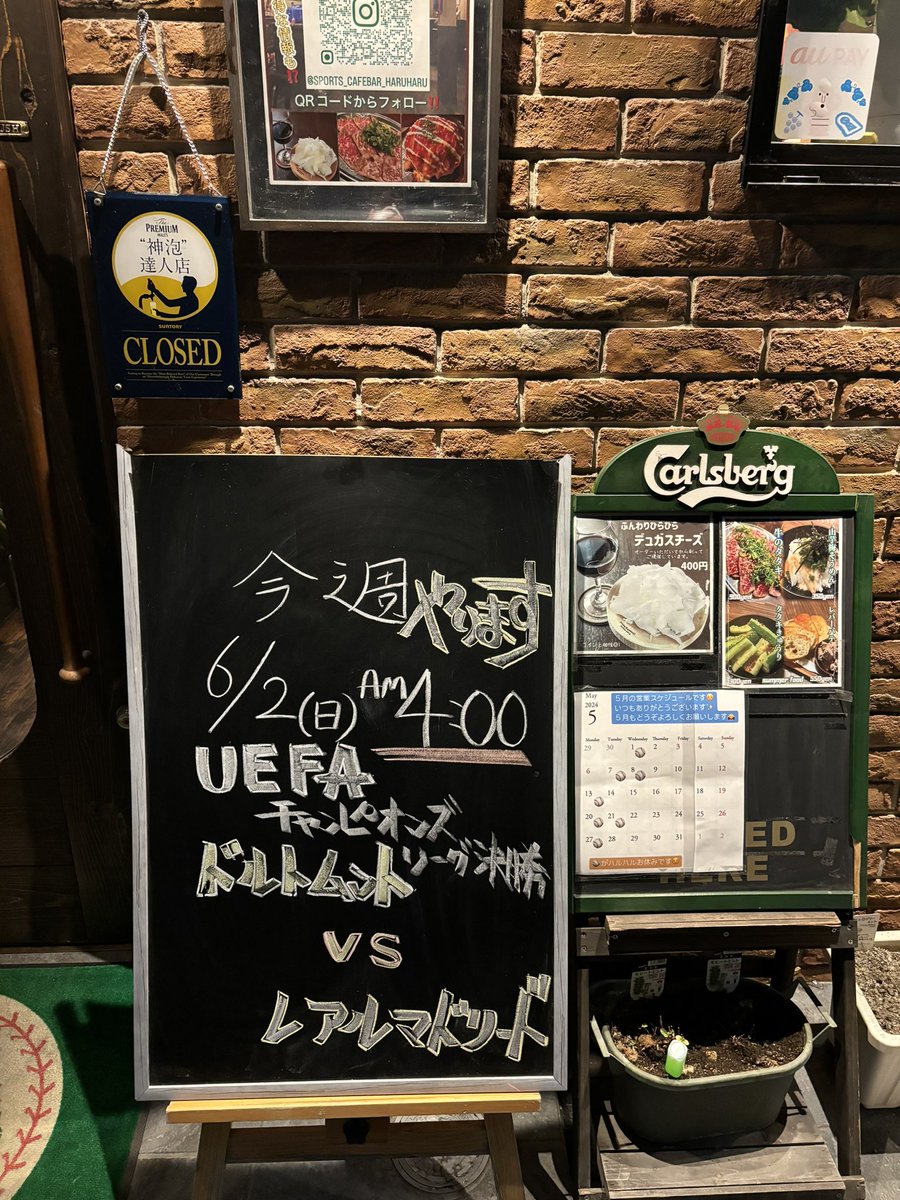 @SPORTS_CAFEBAR_HARUHARU
QRコードからフォロー!!
au PAY
The
PREMIUM
MALT'S
"神泡"
達人店
SUNTORY
CLOSED
今週やります
6/2(日) AM 4:00
UEFA
チャンピオンズ
リーグ決勝
ドルトムント
vs
レアルマドリード
Carlsberg
ふんわりひらひら
デュガスチーズ
オーダーいただいてから削って
ご提供しています。
400円
牛のタタキ
summer food
550yen
May
2024
5
5月の営業スケジュールです
いつもありがとうございます
5月もどうぞよろしくお願いします
Monday Tuesday Wednesday Thursday Friday Saturday Sunday
29 30 1 2 3 4 5
6 7 8 9 10 11 12
13 14 15 16 17 18 19
20 21 22 23 24 25 26
27 28 29 30 31 1 2
がハルハルお休みです
HERE